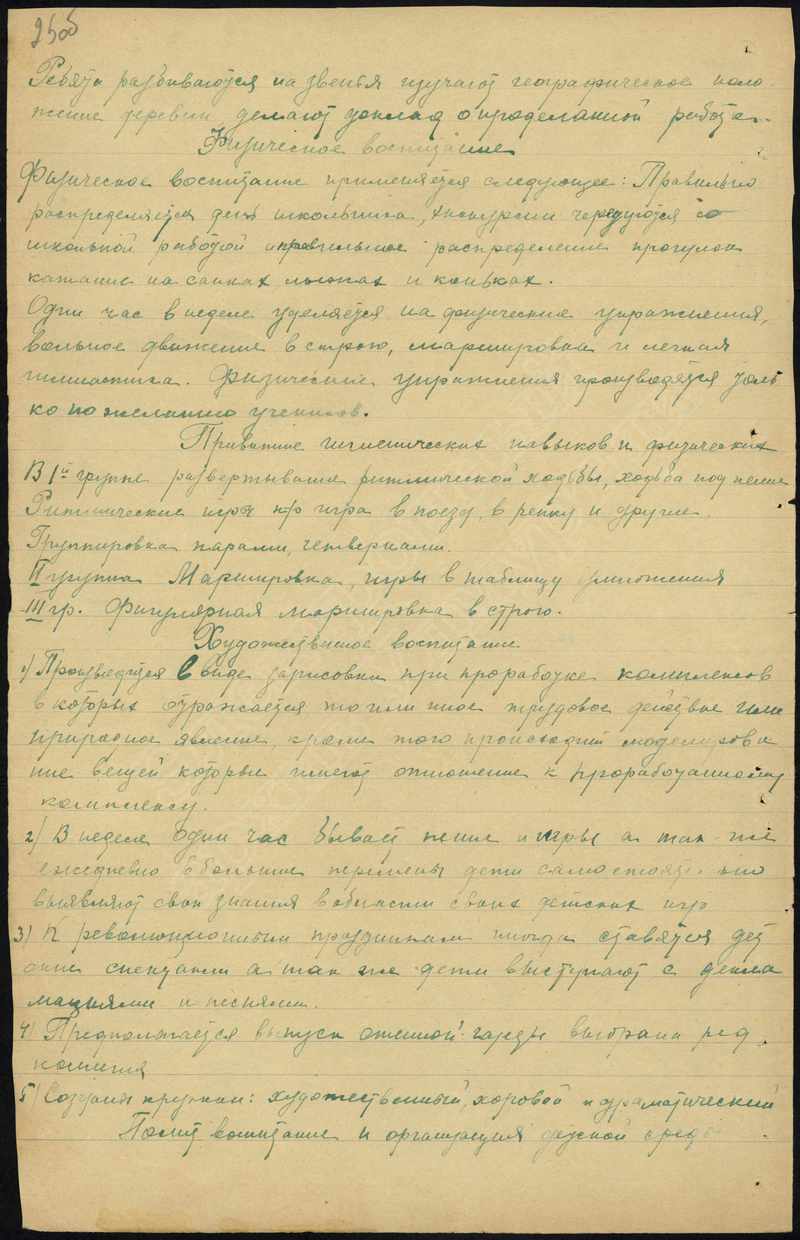 25об
Ребята разбиваются на звенья изучают географическое поло-
жение деревни, делают доклад о проделанной работе.
Физическое воспитание
Физическое воспитание применяется следующее: Правильно
распределяется день школьника, экскурсии чередуются со
школьной работой и правильное распределение прогулок
катание на санках лыжах и коньках.
Один час в неделе уделяется на физические упражнения,
вольное движение в строю, маршировка и легкая
гимнастика. Физические упражнения производятся толь
ко по желанию учеников.
Привитие гигиенических навыков и физических
В Iй группе развертывание ритмической ходьбы, ходьба под пение
Ритмические игры н/р игра в поезд, в репку и другие.
Группировка парами, четверками.
II группа Маршировка, игры в таблицу умножения
III гр. Фигурная маршировка в строю.
Художественное воспитание
1) Производится в виде зарисовки при проработке комплексов
в которых отражается то или иное трудовое действие или
природное явление, кроме того происходит моделирова
ние вещей которые имеют отношение к проработанному
комплексу.
2) В неделе один час бывает пение и игры а так-же
ежедневно в большие перемены дети самостоятельно
выявляют свои знания в области своих детских игр
3) К революционным праздникам иногда ставятся дет
ские спектакли а так же дети выступают с декла
мациями и песнями.
4) Предполагается выпуск стенной газеты выбрана ред.
коллегия
5) Созданы кружки: художественный, хоровой и драматический
Полит воспитание и организация детской среды.